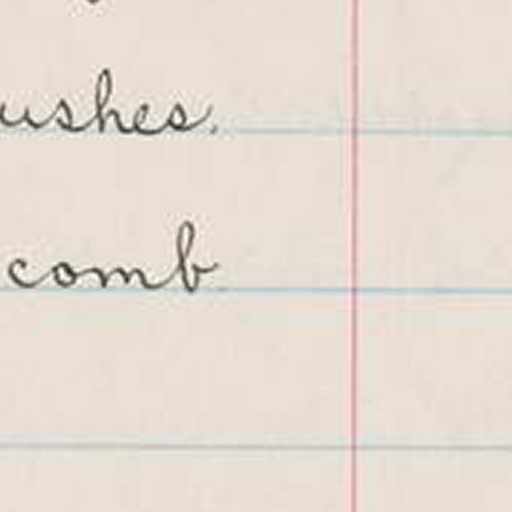 ushes.
comb